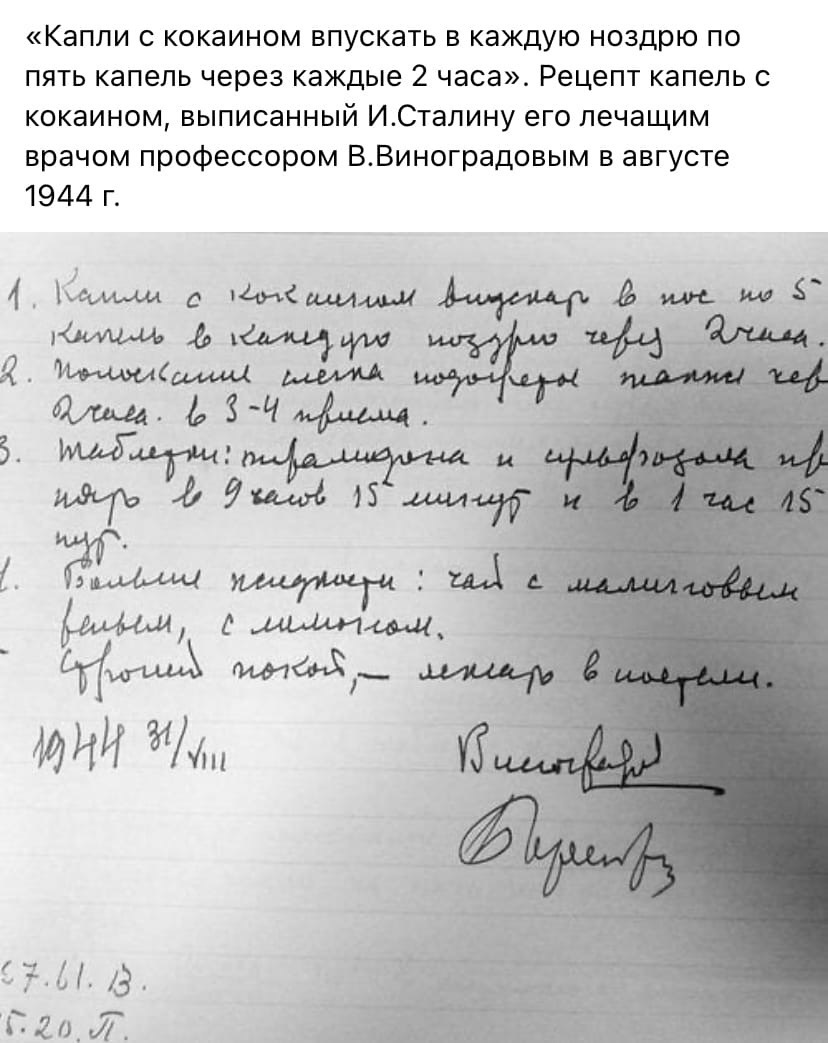 «Капли с кокаином впускать в каждую ноздрю по
пять капель через каждые 2 часа». Рецепт капель с
кокаином, выписанный И.Сталину его лечащим
врачом профессором В.Виноградовым в августе
1944 г.
1. Капли с кокаином впускать в нос по 5
капель в каждую ноздрю через 2 часа.
2. Полоскание
2 часа. в 3-4 приема.
3. Таблетки: пирамидона и сульфозола пр
нять в 9 часов 15 минут и в 1 час 15
нут.
Больше жидкости: чай с малиновым
реньем, с лимоном.
Строгий покой, – лежать в постели.
1944 31/VIII
Виноградов
7.61.В.
5.20.П.